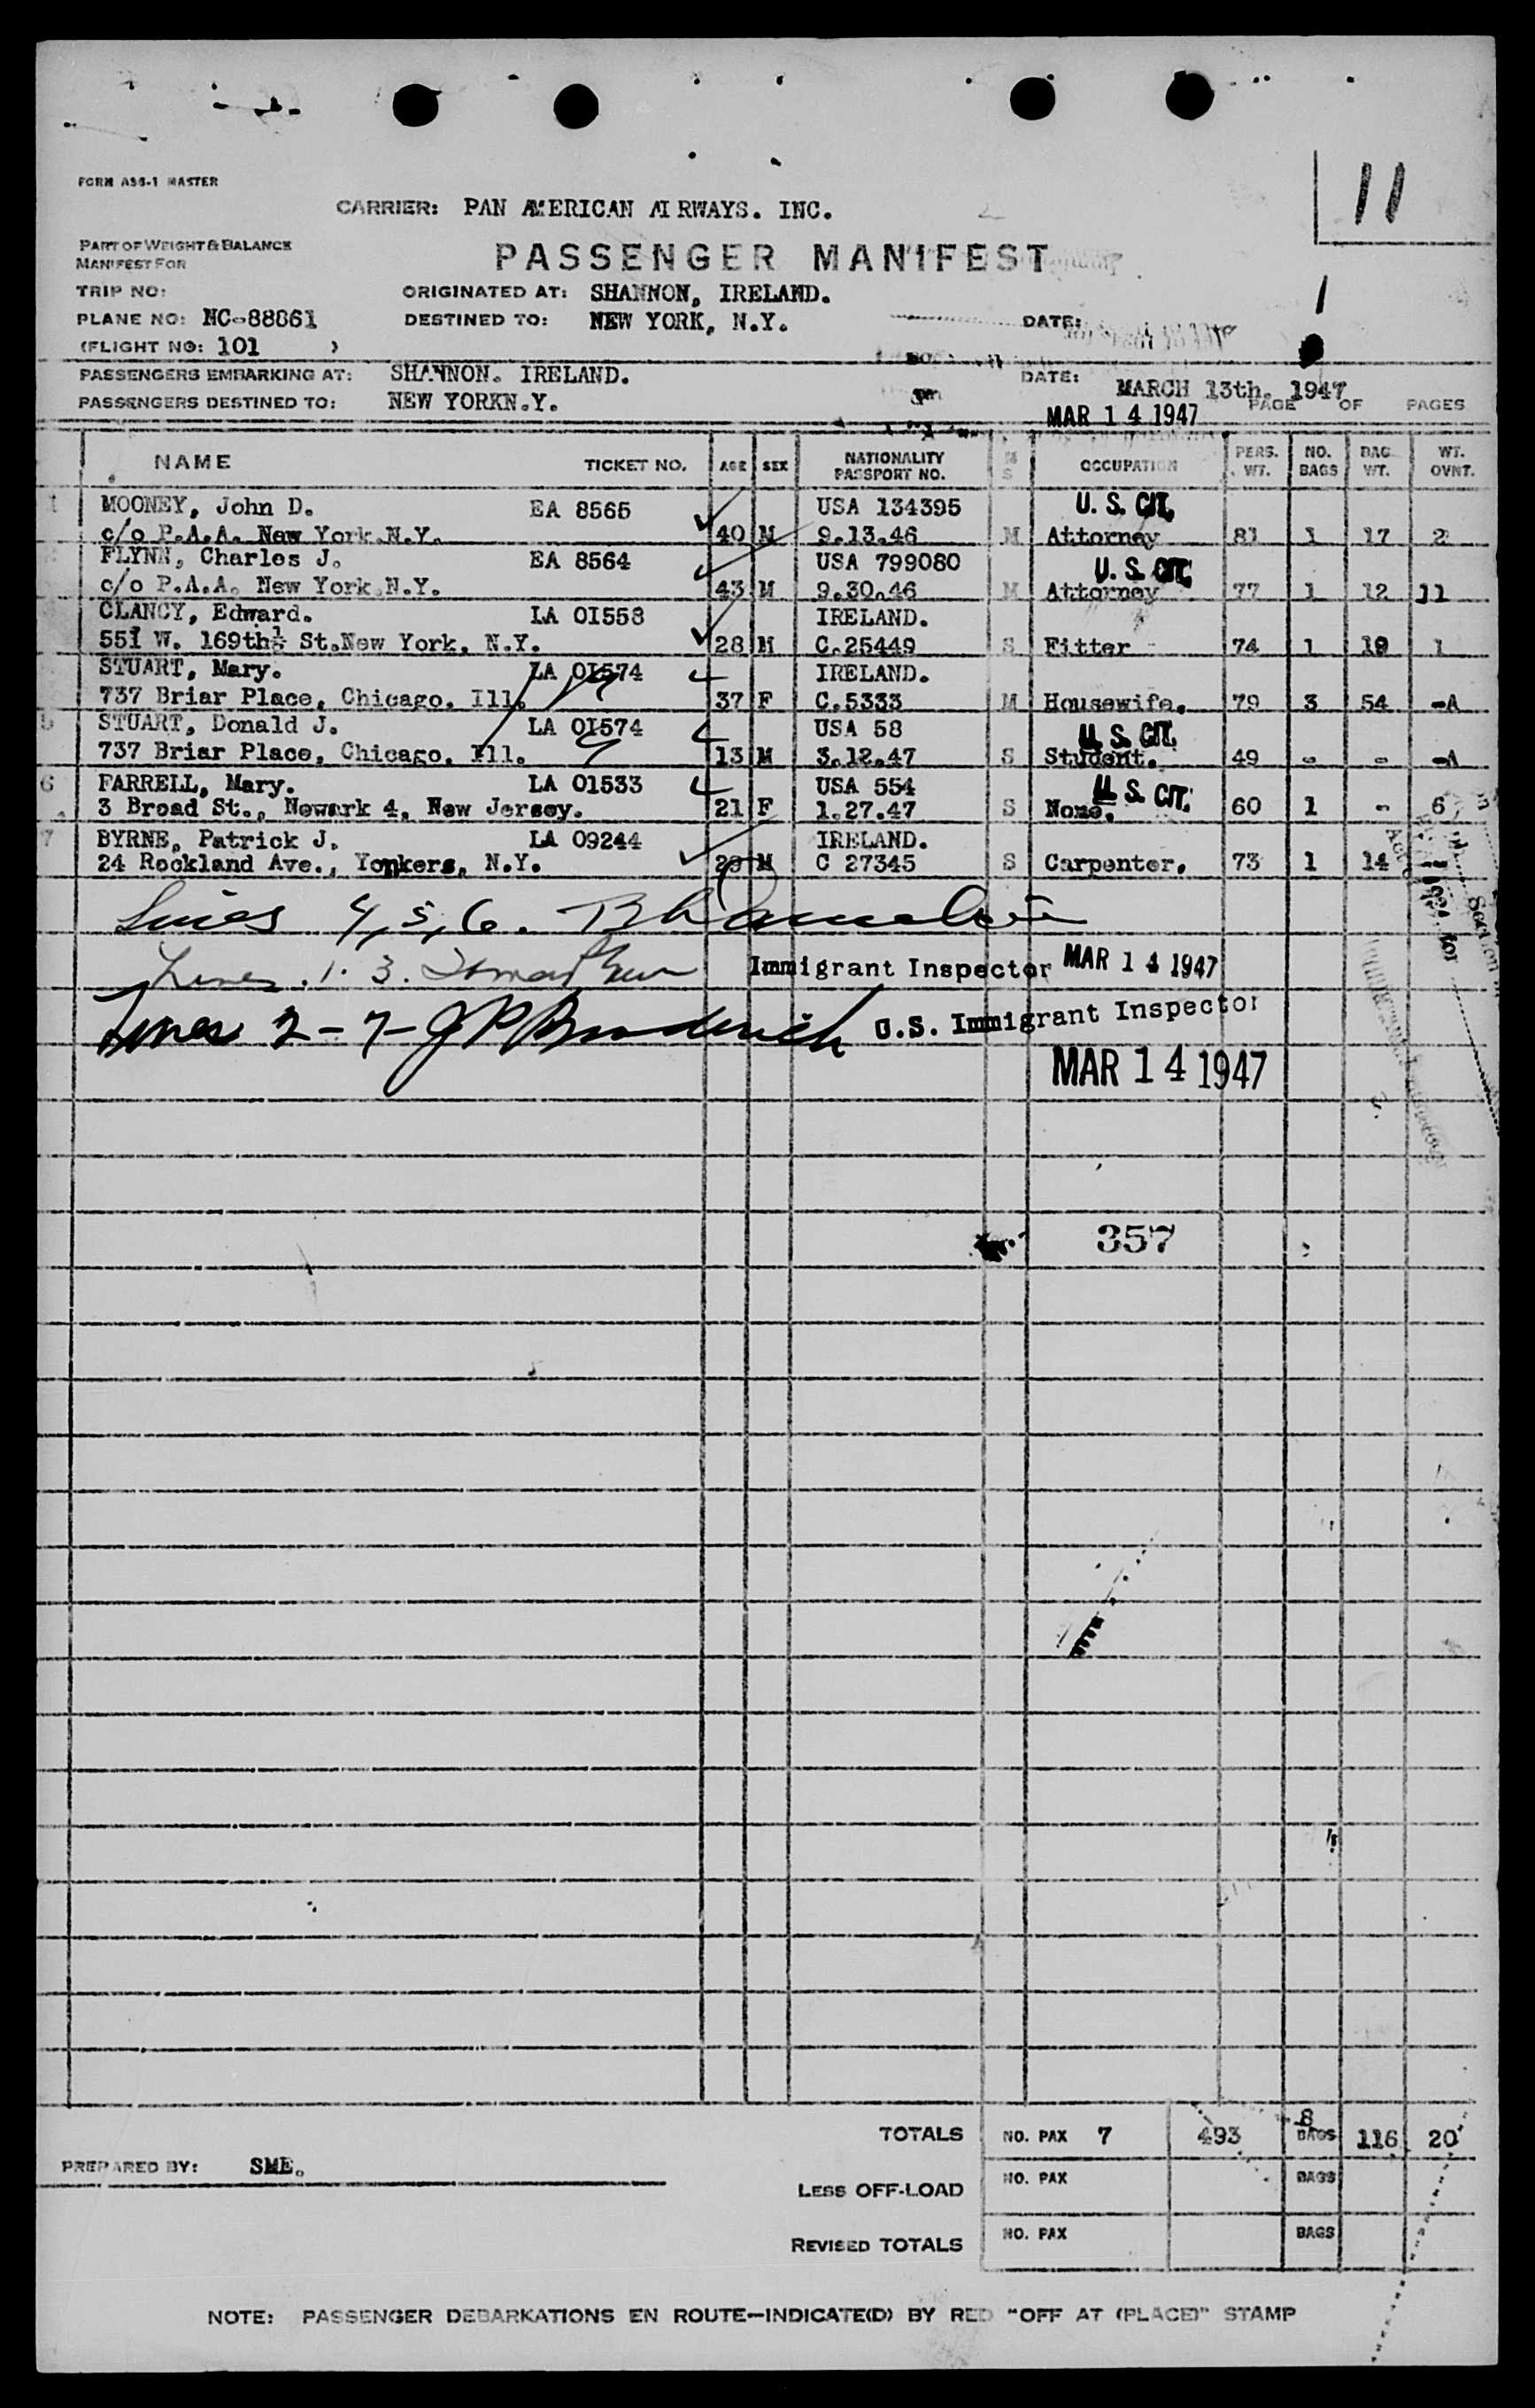 11
FORM ASS-1 MASTER
CARRIER: PAN AMERICAN AIRWAYS. INC.
PART OF WEIGHT & BALANCE
MANIFEST FOR
PASSENGER MANIFEST
TRIP NO:
ORIGINATED AT: SHANNON, IRELAND.
PLANE NO: NC-88861
DESTINED TO: NEW YORK, N.Y.
DATE:
(FLIGHT NO: 101 )
PASSENGERS EMBARKING AT: SHANNON. IRELAND.
DATE: MARCH 13th. 1947
PASSENGERS DESTINED TO: NEW YORKN.Y.
MAR 14 1947
PAGE OF PAGES
NAME TICKET NO. AGE SEX NATIONALITY PASSPORT NO. M S OCCUPATION PERS. WT. NO. BAGS BAG WT. WT. OVNT.
1 MOONEY, John D. EA 8565 USA 134395 U. S. CIT.
c/o P.A.A. New York.N.Y. 40 M 9.13.46 M Attorney 81 1 17 2
FLYNN, Charles J. EA 8564 USA 799080 U. S. CIT.
c/o P.A.A. New York.N.Y. 43 M 9.30.46 M Attorney 77 1 12 11
CLANCY, Edward. LA 01558 IRELAND.
551 W. 169th St.New York, N.Y. 28 M C.25449 S Fitter 74 1 19 1
STUART, Mary. LA 01574 IRELAND.
737 Briar Place, Chicago. Ill. 37 F C.5333 M Housewife. 79 3 54 -A
5 STUART, Donald J. LA 01574 USA 58 U. S. CIT.
737 Briar Place, Chicago. Ill. 13 M 3.12.47 S Student. 49 - - -A
6 FARRELL, Mary. LA 01533 USA 554 U. S. CIT.
3 Broad St., Newark 4, New Jersey. 21 F 1.27.47 S None. 60 1 - 6
7 BYRNE, Patrick J. LA 09244 IRELAND.
24 Rockland Ave., Yonkers, N.Y. 29 M C 27345 S Carpenter. 73 1 14 -
Lines 4, 5, 6.
Lines 1. 3. Immigrant Inspector MAR 14 1947
Lines 2 - 7 - J P Broderick U.S. Immigrant Inspector
MAR 14 1947
357
TOTALS NO. PAX 7 493 8 BAGS 116 20
PREPARED BY: SME.
LESS OFF-LOAD NO. PAX BAGS
REVISED TOTALS NO. PAX BAGS
NOTE: PASSENGER DEBARKATIONS EN ROUTE—INDICATE(D) BY RED "OFF AT (PLACE)" STAMP